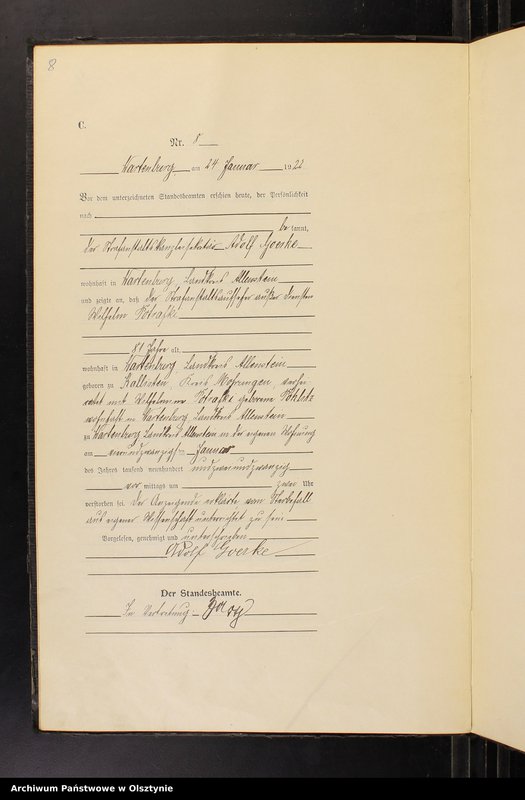 8
C.
Nr. 8
Wartenburg am 24 Januar 1922
Vor dem unterzeichneten Standesbeamten erschien heute, der Persönlichkeit
nach
be kannt,
der Strafanstaltskanzleisekretär Adolf Goerke
wohnhaft in Wartenburg, Landkreis Allenstein
und zeigte an, daß der Strafanstaltsaufseher außer Diensten
Wilhelm
81 Jahre alt,
wohnhaft in Wartenburg Landkreis Allenstein
geboren zu Kreis Mohrungen, verhei-
ratet mit geborene
wohnhaft in Wartenburg Landkreis Allenstein
zu Wartenburg Landkreis Allenstein in der eigenen Wohnung
am Januar
des Jahres tausend neunhundert undzweiundzwanzig
vor mittags um zwei Uhr
verstorben sei. Der Anzeigende erklärte vom Sterbefall
aus eigener Wissenschaft unterrichtet zu sein
Vorgelesen, genehmigt und unterschrieben
Adolf Goerke
Der Standesbeamte.
In Vertretung
Archiwum Państwowe w Olsztynie